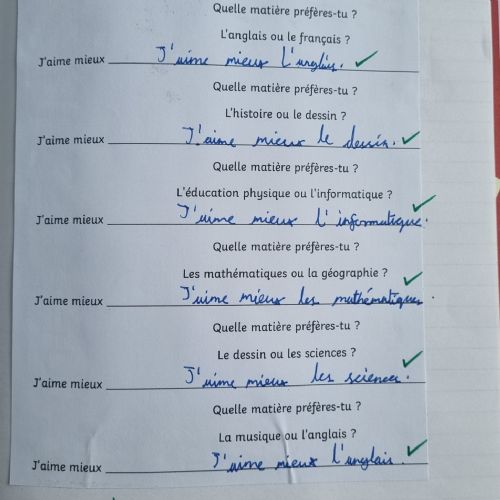 Quelle matière préfères-tu ?
L'anglais ou le français ?
J'aime mieux J'aime mieux l'anglais.
Quelle matière préfères-tu ?
L'histoire ou le dessin ?
J'aime mieux J'aime mieux le dessin.
Quelle matière préfères-tu ?
L'éducation physique ou l'informatique ?
J'aime mieux J'aime mieux l'informatique.
Quelle matière préfères-tu ?
Les mathématiques ou la géographie ?
J'aime mieux J'aime mieux les mathématiques.
Quelle matière préfères-tu ?
Le dessin ou les sciences ?
J'aime mieux J'aime mieux les sciences.
Quelle matière préfères-tu ?
La musique ou l'anglais ?
J'aime mieux J'aime mieux l'anglais.